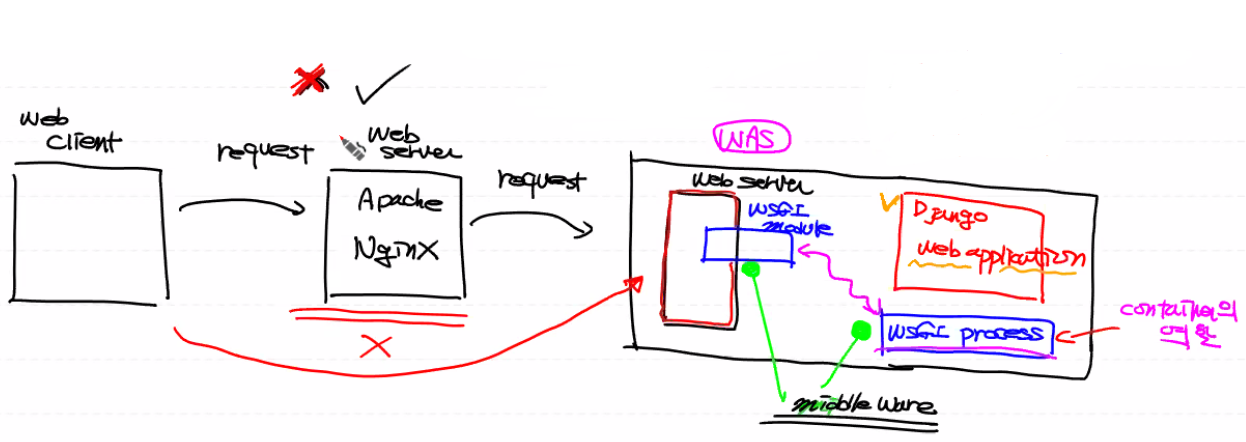 web
client
request
web
server
Apache
NginX
request
WAS
web server
WSGI
module
Django
web application
WSGI process
container의
역할
middle ware